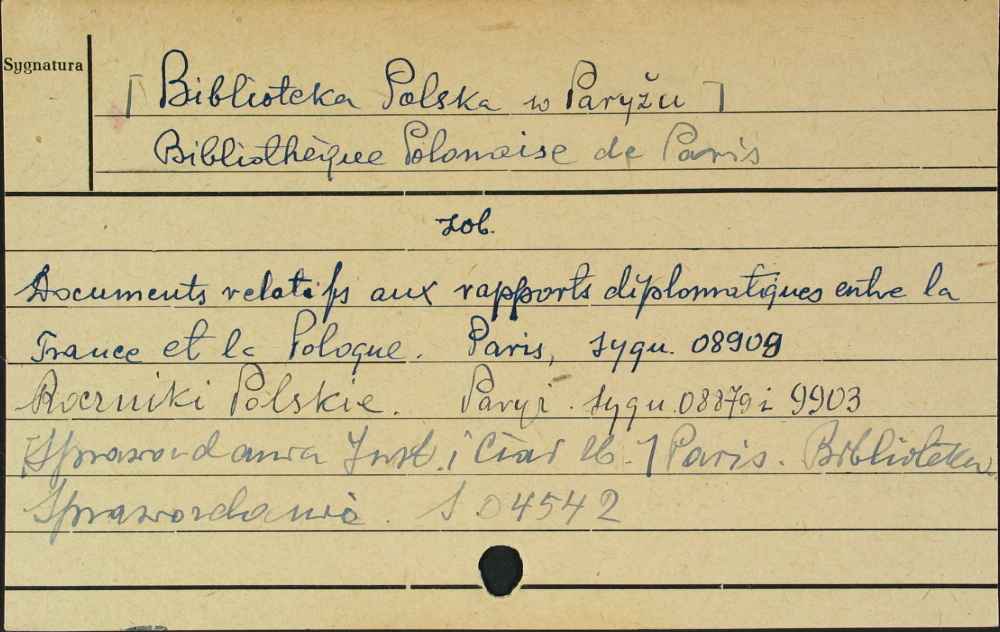 Sygnatura
[ Biblioteka Polska w Paryżu ]
Bibliothèque Polonaise de Paris
zob.
Documents relatifs aux rapports diplomatiques entre la
France et la Pologne. Paris, sygn. 08909
Roczniki Polskie. Paryż. sygn. 08879 i 9903
[Sprawozdania Inst. i ] Paris. Biblioteka
Sprawozdania. S 04542